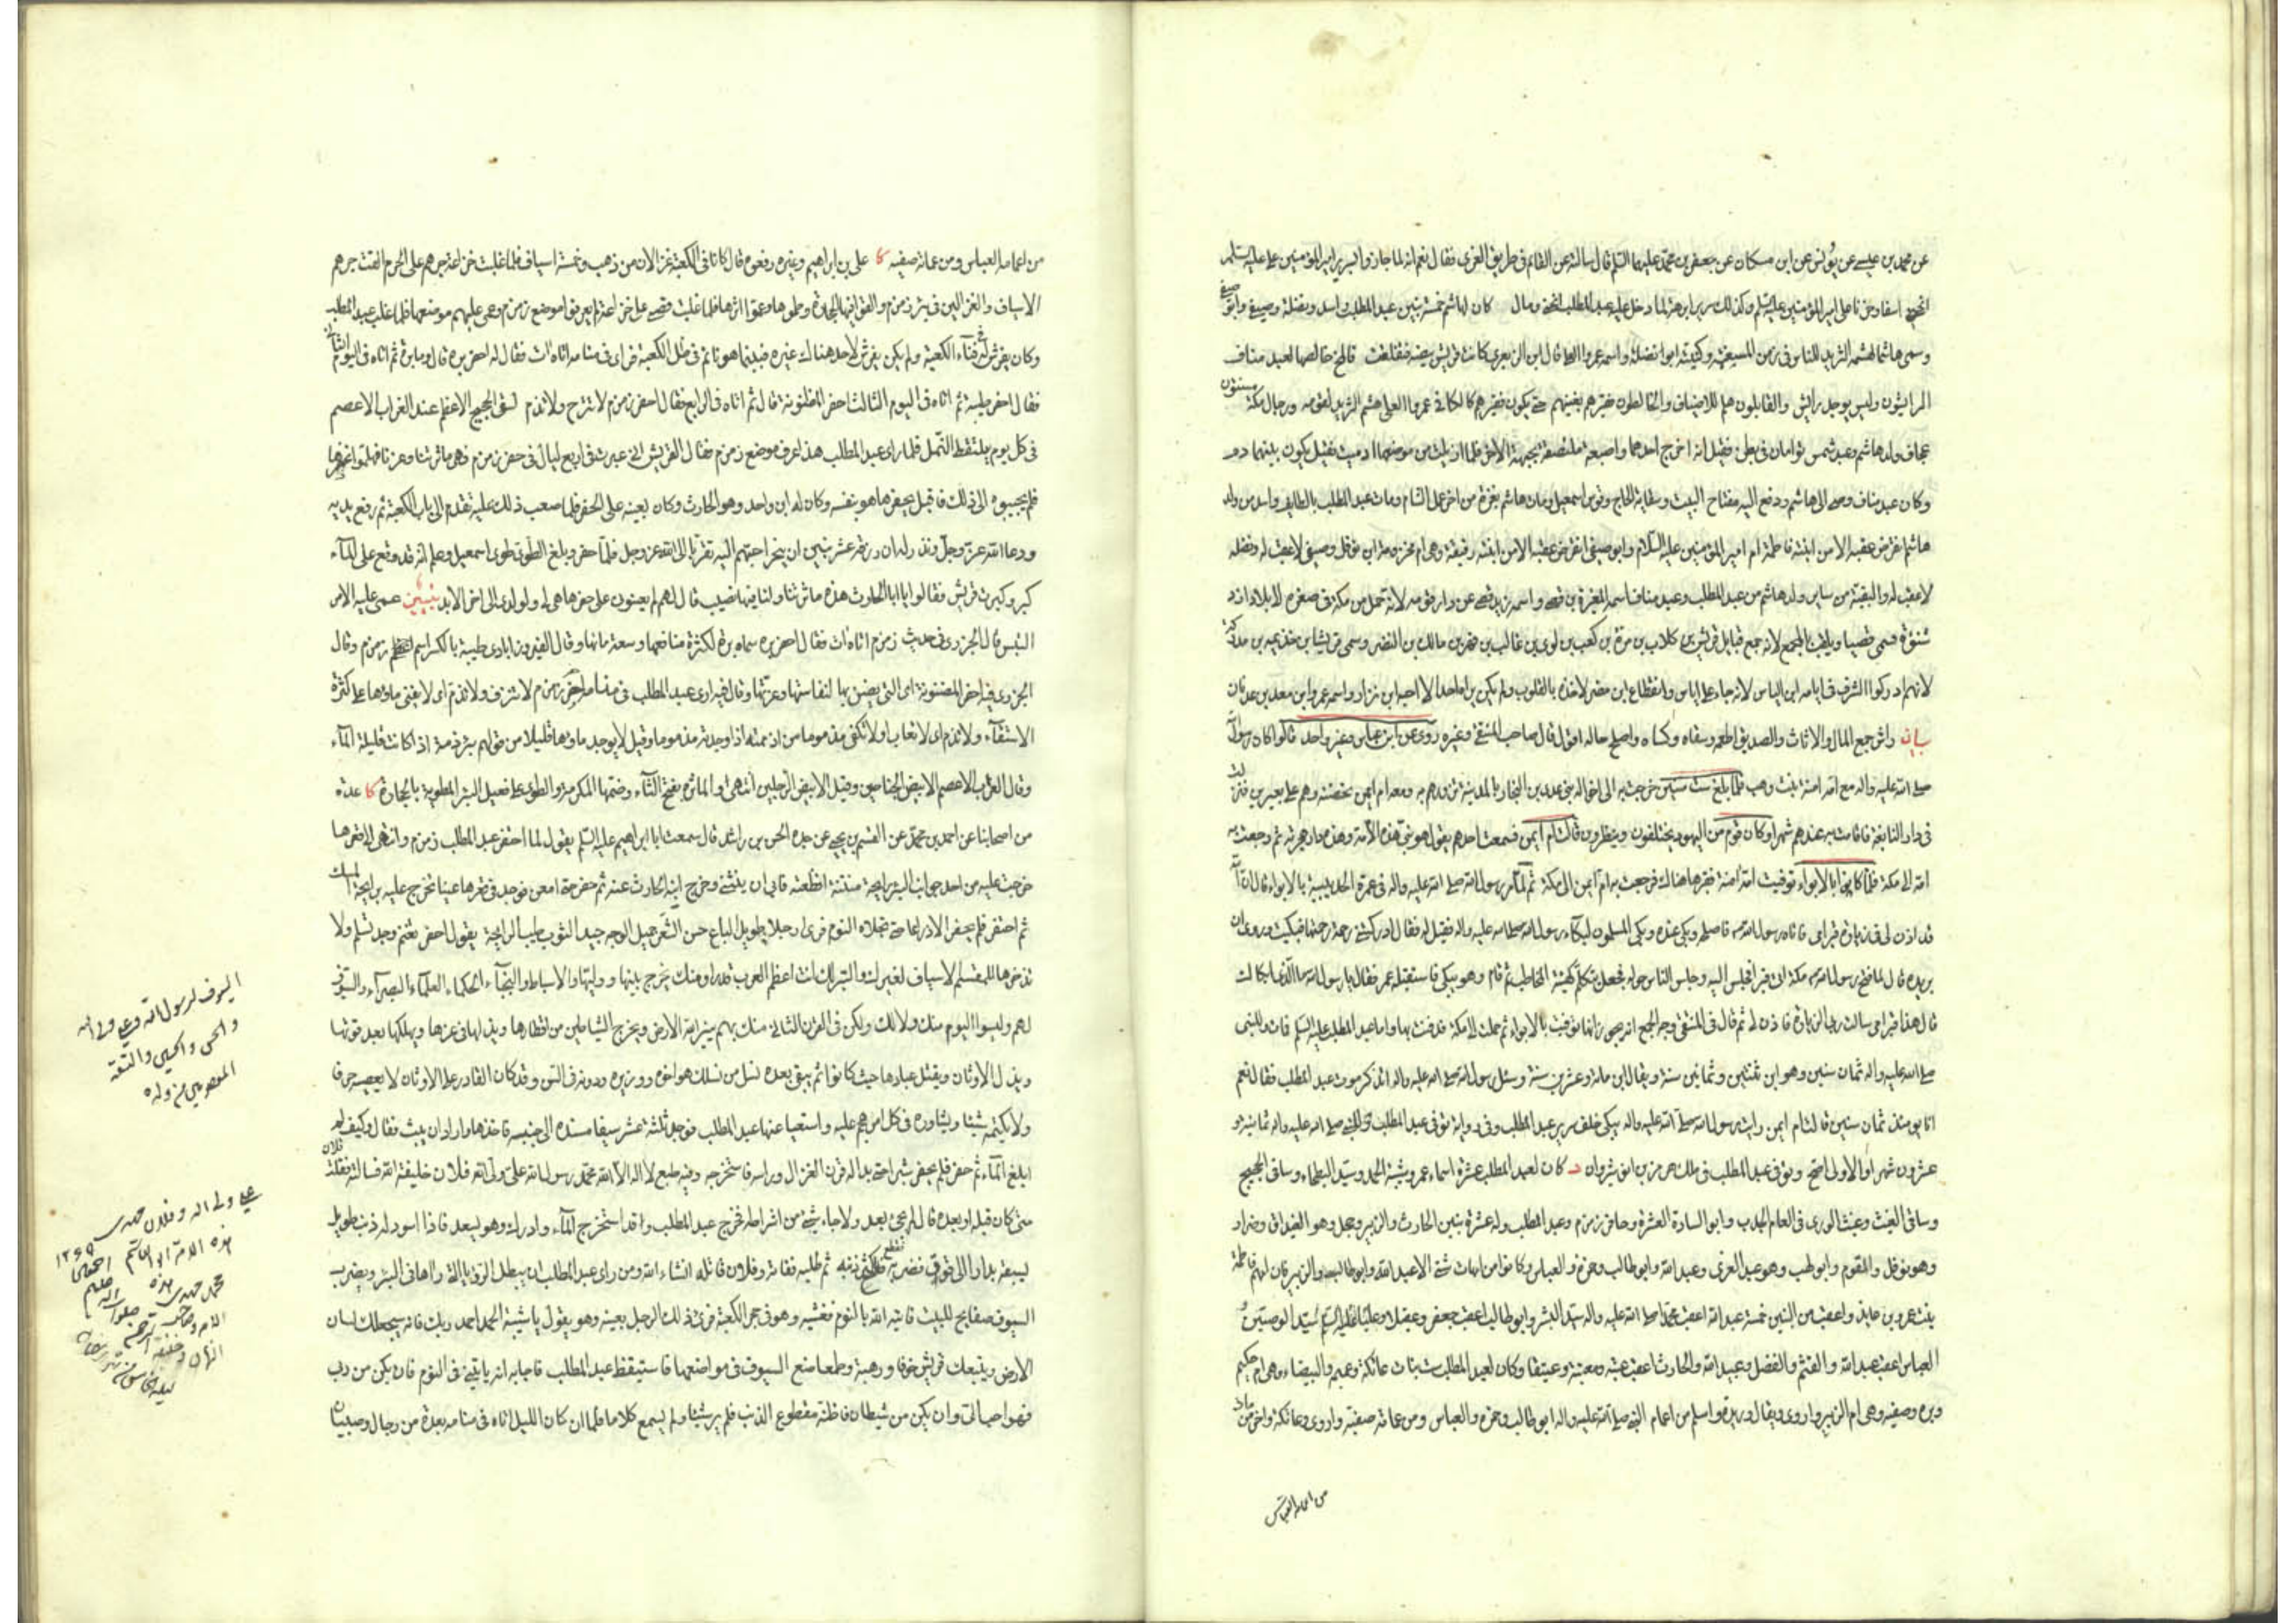 عن محمد بن عيسى عن يونس عن ابن مسكان عن جعفر بن محمد عليهما السلام قال سالته عن القائم فى طريق الغرى فقال نعم انه لما جازوا بسرير امير المؤمنين على عليه السلم
انحنى اسفا وحزنا على امير المؤمنين عليه السلم وكذلك سرير ابرهة لما دخل عليه عبد المطلب انحنى ومال كان لهاشم خمسة بنين عبد المطلب واسد ونضلة وصيفى وابو صيفى
وسمى هاشما لهشمه الثريد للناس فى زمن المسغبة وكنيته ابو نضلة واسمه عمرو العلا قال ابن الزبعرى كانت قريش بيضة فتفلقت فالمخ خالصها لعبد مناف
الرايشون وليس يوجد رايش والقايلون هلم للاضياف والخالطون فقيرهم بغنيهم حتى يكون فقيرهم كالكافى عمرو العلى هشم الثريد لقومه ورجال مكة مسنتون
عجاف ولد هاشم وعبد شمس توأمان فى بطن فقيل انه اخرج احدهما واصبعه ملتصقة بجبهة الاخر فلما ازيلت من موضعها ادميت فقيل يكون بينهما دم
وكان عبد مناف وصى الى هاشم ودفع اليه مفتاح البيت وسقاية الحاج وقوس اسمعيل ومات هاشم بغزة من اخر عمل الشام ومات عبد المطلب بالطايف واسد من ولد
هاشم انقرض عقبه الا من ابنته فاطمة ام امير المؤمنين عليه السلام وابو صيفى انقرض عقبه الا من ابنته رقيقة وهى ام مخرمة بن نوفل وصيفى لا عقب له ونضلة
لا عقب له والبقية من ساير ولد هاشم من عبد المطلب وعبد مناف اسمه المغيرة بن قصى واسمه زيد قصى عن دار قومه لانه حمل من مكة فى صغره الى بلاد ازد
شنوة فسمى قصيا ويلقب بالمجمع لانه جمع قبايل قريش بن كلاب بن مرة بن كعب بن لوى بن غالب بن فهر بن مالك بن النضر وسمى قريشا بن خذيمه بن مدركة
لانهم ادركوا الشرف فى ايامه ابن الياس لانه جاء على اياس وانقطاع ابن مضر لاخذه بالقلوب ولم يكن يراه احد الا احبه ابن نزار واسمه عمرو ابن معد بن عدنان
بيان راش جمع المال والاثاث والصديق اطعمه وسقاه وكساه واصلح حاله اقول قال صاحب المنتقى وغيره روى عن ابن عباس وغير واحد قالوا كان رسول الله
صلى الله عليه واله مع امه امنة بنت وهب فلما بلغ ست سنين خرجت به الى اخواله بنى عدى بن النجار بالمدينة تزورهم به ومعه ام ايمن تحضنه وهم على بعيرين فنزلت به
فى دار النابغة فاقامت به عندهم شهرا وكان قوم من اليهود يختلفون وينظرون قالت ام ايمن فسمعت احدهم يقول هو نبى هذه الامة وهذه دار هجرته ثم رجعت به
امه الى مكة فلما كانوا بالابواء توفيت امه آمنة فقبرها هناك فرجعت به ام ايمن الى مكة ثم لما مر رسول الله صلى الله عليه واله فى عمرة الحديبية بالابواء قال ان الله
قد اذن لى فى زيارة قبر امى فاتاه رسول الله ص فاصلحه وبكى عنده وبكى المسلمون لبكاء رسول الله صلى الله عليه واله فقيل له فقال ادركتنى رحمة رحمتها فبكيت وروى عن
بريدة قال لما فتح رسول الله ص مكة اتى قبرا فجلس اليه وجلس الناس حوله فجعل يتكلم كهيئة المخاطب ثم قام وهو يبكى فاستقبله عمر فقال يا رسول الله ما الذى ابكاك
قال هذا قبر امى سالت ربى الزيارة فاذن لى ثم قال فى المنتقى وجه الجمع انه يجوز انها توفيت بالابواء ثم حملت الى مكة فدفنت بها واما عبد المطلب عليه السلم فمات وللنبى
صلى الله عليه واله ثمان سنين وهو ابن ثنتين وثمانين سنة ويقال ابن مائة وعشرين سنة وسئل رسول الله صلى الله عليه واله اتذكر موت عبد المطلب فقال نعم
انا يومئذ ثمان سنين قالت ام ايمن رايت رسول الله صلى الله عليه واله يبكى خلف سرير عبد المطلب وفى رواية توفى عبد المطلب وللنبى صلى الله عليه واله ثمانية و
عشرون شهرا والاولى اصح وتوفى عبد المطلب فى ملك هرمز بن انوشيروان د كان لعبد المطلب عشرة اسماء عمرو شيبة الحمد وسيد البطحاء وساقى الحجيج
وساقى الغيث وغيث الورى فى العام الجدب وابو السادة العشرة وحافر زمزم وعبد المطلب وله عشرة بنين الحارث والزبير وحجل وهو الغيداق وضرار
وهو نوفل والمقوم وابو لهب وهو عبد العزى وعبد الله وابو طالب وحمزة والعباس وكانوا من امهات شتى الا عبد الله وابو طالب والزبير فان امهم فاطمة
بنت عمرو بن عايذ واعقب من البنين خمسة عبد الله اعقب محمدا صلى الله عليه واله سيد البشر وابو طالب اعقب جعفر وعقيلا وعليا عليه السلم سيد الوصيين و
العباس اعقب عبد الله والقثم والفضل وعبيد الله والحارث اعقب عتبة ومعتبة وعتيقا وكان لعبد المطلب ست بنات عاتكة وعميمه والبيضاء وهى ام حكيم
وبرة وصفيه وهى ام الزبير واروى ويقال وريدة واسلم من اعمام النبى صلى الله عليه واله ابو طالب وحمزة والعباس ومن عماته صفية واروى وعاتكة واخر من مات
من اعمامه العباس
من اعمامه العباس ومن عماته صفيه كا على بن ابراهيم وغيره رفعوه قال كان فى الكعبة غزالان من ذهب وخمسة اسياف فلما غلبت خزاعة جرهم على الحرم القت جرهم
الاسياف والغزالين فى بئر زمزم والقوا فيها الحجارة وطموها وعموا اثرها فلما غلب قصى على خزاعة لم يعرفوا موضع زمزم وعمى عليهم موضعها فلما غلب عبد المطلب
وكان يفرش له فى فناء الكعبة ولم يكن يفرش لاحد هناك غيره فبينما هو نائم فى ظل الكعبة فراى فى منامه اتاه ات فقال له احفر برة قال وما برة ثم اتاه فى اليوم الثانى
فقال احفر طيبة ثم اتاه فى اليوم الثالث احفر المظنونة قال ثم اتاه فى الرابع فقال احفر زمزم لا تنزح ولا تذم لسقى الحجيج الاعظم عند الغراب الاعصم
فى كل يوم يلتقط النمل فلما راى عبد المطلب هذا عرف موضع زمزم فقال لقريش انى عبرت فى اربع ليال فى حفر زمزم فهى ماثرتنا وعزنا فهلموا نحفرها
فلم يجيبوه الى ذلك فاقبل يحفرها هو بنفسه وكان له ابن واحد وهو الحارث وكان يعينه على الحفر فلما صعب ذلك عليه تقدم الى باب الكعبة ثم رفع يديه
ودعا الله عز وجل ونذر له ان رزقه عشر بنين ان ينحر احبهم اليه تقربا الى الله عز وجل فلما حفر وبلغ الطوى طوى اسمعيل وعلم انه قد وقع على الماء
كبر وكبرت قريش فقالوا يا ابا الحارث هذه ماثرتنا ولنا فيها نصيب قال لهم لم تعينونى على حفرها هى لى ولولدى الى اخر الابد تبيين عمى عليه الامر
التبس قال الجزرى فى حديث زمزم اتاه ات فقال احفر برة سماه برة لكثرة منافعها وسعة مائها وقال الفيروزابادى طيبة بالكسر اسم زمزم وقال
الجزرى فيه احفر المضنونة اى التى يضن بها لنفاستها وعزتها وقال فيه ارى عبد المطلب فى منامه احفر زمزم لا تنزف ولا تذم اى لا يفنى ماؤها على كثرة
الاستقاء ولا تذم اى لا تعاب او لا تلفى مذموما من اذممته اذا وجدته مذموما وقيل لا يوجد ماؤها قليلا من قولهم بئر ذمة اذا كانت قليلة الماء
وقال الغراب الاعصم الابيض الجناحين وقيل الابيض الرجلين انتهى او الماثرة بفتح الثاء وضمها المكرمة والطوى على فعيل البئر المطوية بالحجارة كا عدة
من اصحابنا عن احمد بن محمد عن القسم بن يحيى عن جده الحسن بن راشد قال سمعت ابا ابراهيم عليه السلم يقول لما احتفر عبد المطلب زمزم وانتهى الى قعرها
خرجت عليه من احد جوانب البئر رايحة منتنة افظعته فابى ان ينثنى وخرج ابنه الحارث عنه ثم حفر حتى امعن فوجد فى قعرها عينا تخرج عليه برايحة المسك
ثم احتفر فلم يحفر الا ذراعا حتى تجلاه النوم فراى رجلا طويل الباع حسن الشعر جميل الوجه جيد الثوب طيب الرايحة يقول احفر تغنم وجد تسلم ولا
تدخرها للمقسم الاسياف لغيرك والبئر لك انت اعظم العرب قدرا ومنك يخرج نبيها ووليها والاسباط والنجباء الحكماء العلماء البصراء والسيوف
لهم وليسوا اليوم منك ولا لك ولكن فى القرن الثانى منك بهم ينير الله الارض ويخرج الشياطين من اقطارها ويذلها فى عزها ويهلكها بعد قوتها
ويذل الاوثان ويقتل عبادها حيث كانوا ثم يبقى بعده نسل من نسلك هو اخوه ووزيره ودونه فى السن وقد كان القادر على الاوثان لا يعصيه حرفا
ولا يكتمه شيئا ويشاوره فى كل امر هجم عليه واستعيا عنها عبد المطلب فوجد ثلثة عشر سيفا مسندة الى جنبه فاخذها واراد ان يبث فقال وكيف ولم
ابلغ الماء ثم حفر فلم يحفر شبرا حتى بدا له قرن الغزال وراسه فاستخرجه وفيه طبع لا اله الا الله محمد رسول الله على ولى الله فلان خليفة الله فسالته فقلت فلان
متى كان قبله او بعده قال لم يجئ بعد ولا جاء شىء من اشراطه فخرج عبد المطلب وقد استخرج الماء وادرك وهو يصعد فاذا اسود له ذنب طويل
يسبقه بدارا الى فوق فضربه فقطع اكثر ذنبه ثم طلبه ففاته وفلان قاتله انشاء الله ومن راى عبد المطلب ان يبطل الرؤيا التى راها فى البئر ويضرب
السيوف صفايح للبيت فاتاه الله بالنوم فغشيه وهو فى حجر الكعبة فراى ذلك الرجل بعينه وهو يقول يا شيبة الحمد احمد ربك فانه سيجعلك لسان
الارض ويتبعك قريش خوفا ورهبة وطمعا ضع السيوف فى مواضعها فاستيقظ عبد المطلب فاجابه انه ياتينى فى النوم فان يكن من ربى
فهو احب الى وان يكن من شيطان فاظنه مقطوع الذنب فلم ير شيئا ولم يسمع كلاما فلما ان كان الليل اتاه فى منامه بعدة من رجال وصبيان
السيوف لرسول الله وعلى ولى الله
والحسن والحسين والتسعة
المعصومين من ولده
على ولى الله وفلان مهدى
هذه الامة ابو القاسم
محمد مهدى هذه